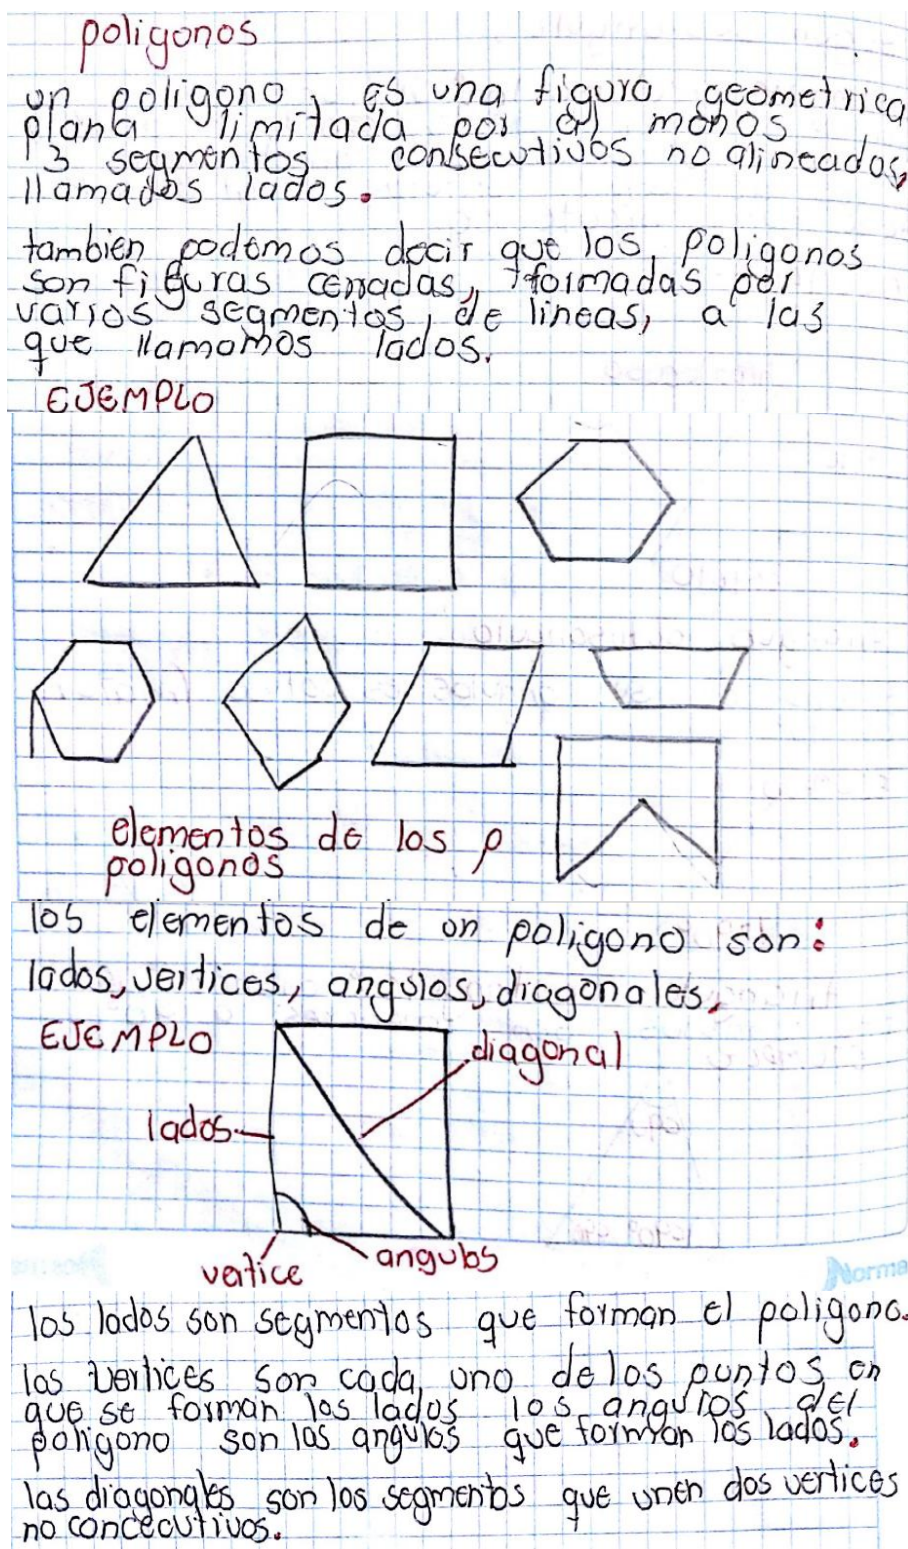 poligonos
un poligono, es una figura geometrica
plana limitada por al monos
3 segmentos consecutivos no alineados,
llamados lados.
tambien podemos decir que los poligonos
son figuras cerradas, formadas por
varios segmentos, de lineas, a las
que llamamos lados.
EJEMPLO
elementos de los p
poligonos
los elementos de un poligono son:
lados, vertices, angulos, diagonales.
EJEMPLO
diagonal
lados
vertice
angulos
Norma
los lados son segmentos que forman el poligono.
los vertices son cada uno de los puntos en
que se forman los lados los angulos del
poligono son los angulos que forman los lados.
las diagonales son los segmentos que unen dos vertices
no concecutivos.